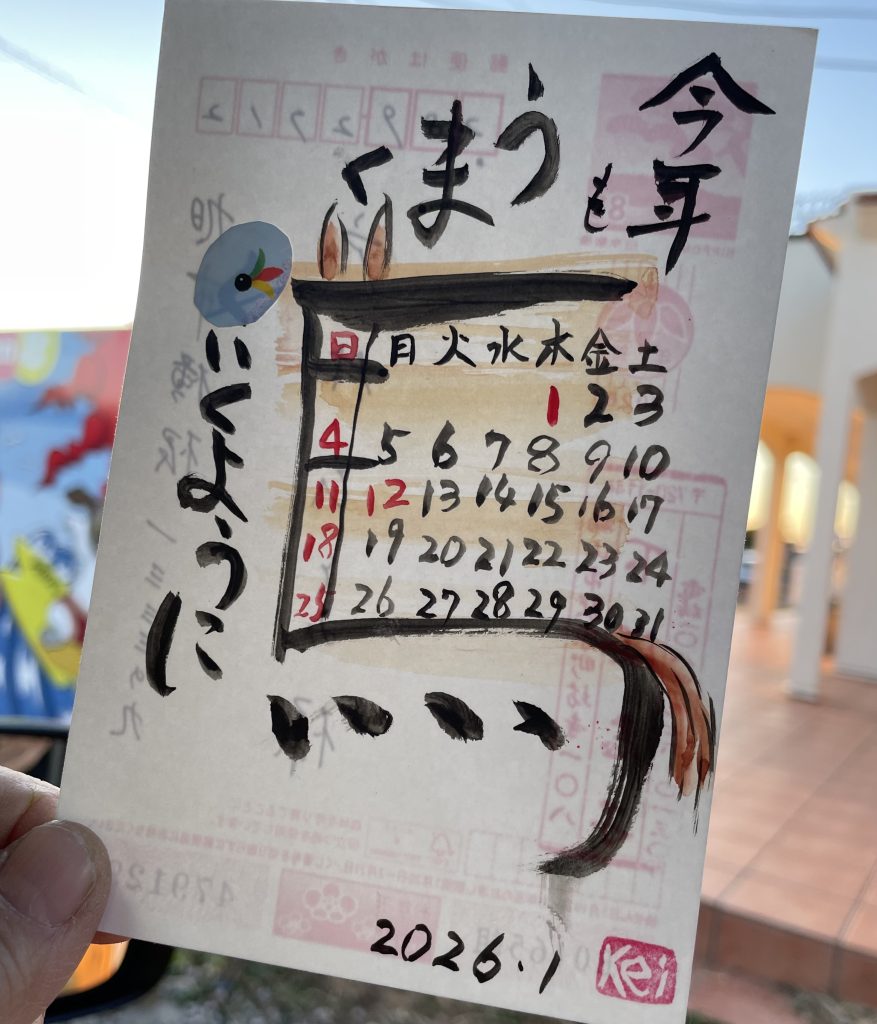 今年も
うまく
いくように
日 月 火 水 木 金 土
1 2 3
4 5 6 7 8 9 10
11 12 13 14 15 16 17
18 19 20 21 22 23 24
25 26 27 28 29 30 31
2026.1
Kei